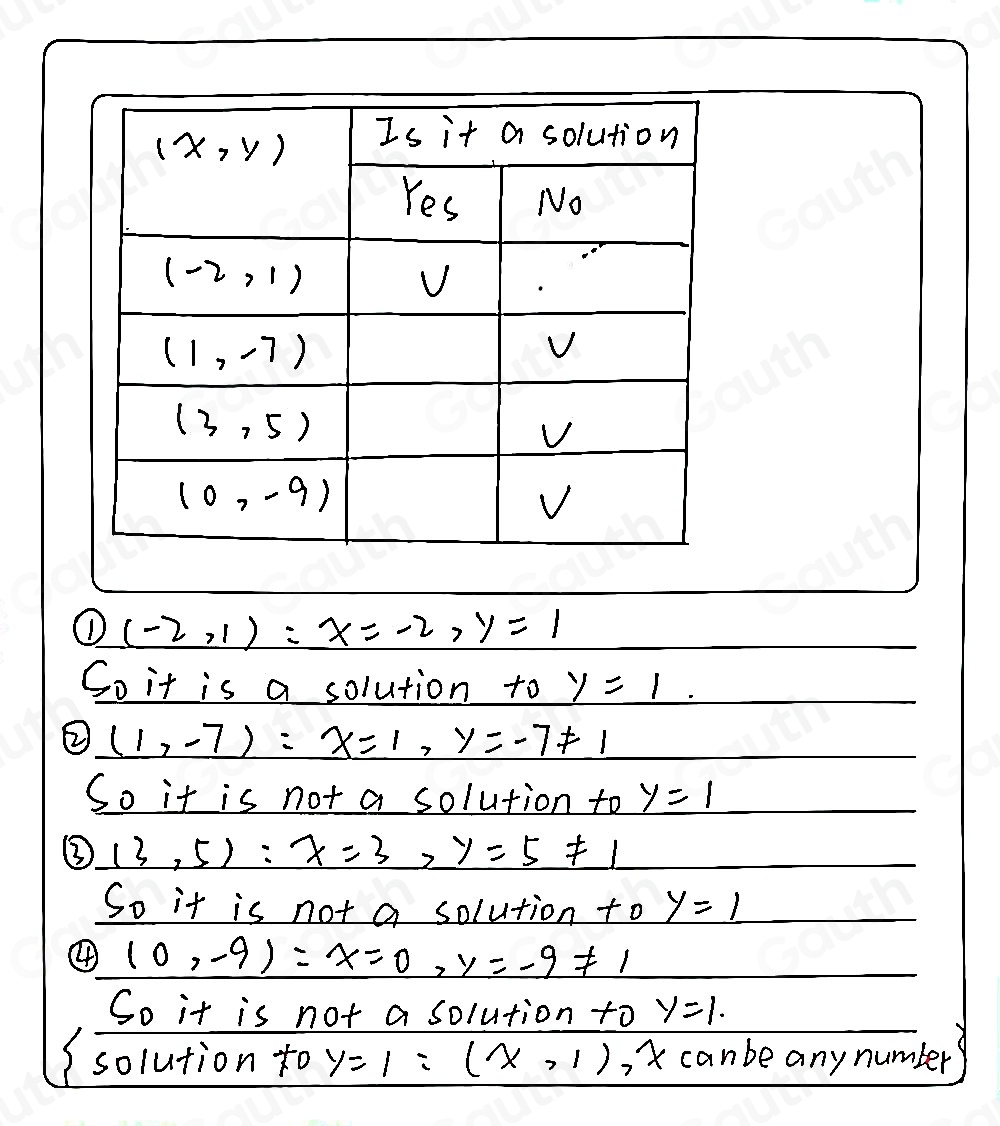 (x, y) Is it a solution
Yes No
(-2, 1) ∨
(1, -7) ∨
(3, 5) ∨
(0, -9) ∨
① (-2, 1) : x = -2, y = 1
So it is a solution to y = 1.
② (1, -7) : x = 1, y = -7 ≠ 1
So it is not a solution to y = 1
③ (3, 5) : x = 3, y = 5 ≠ 1
So it is not a solution to y = 1
④ (0, -9) : x = 0, y = -9 ≠ 1
So it is not a solution to y = 1.
{ solution to y = 1 : (x, 1), x can be any number }
Gauth